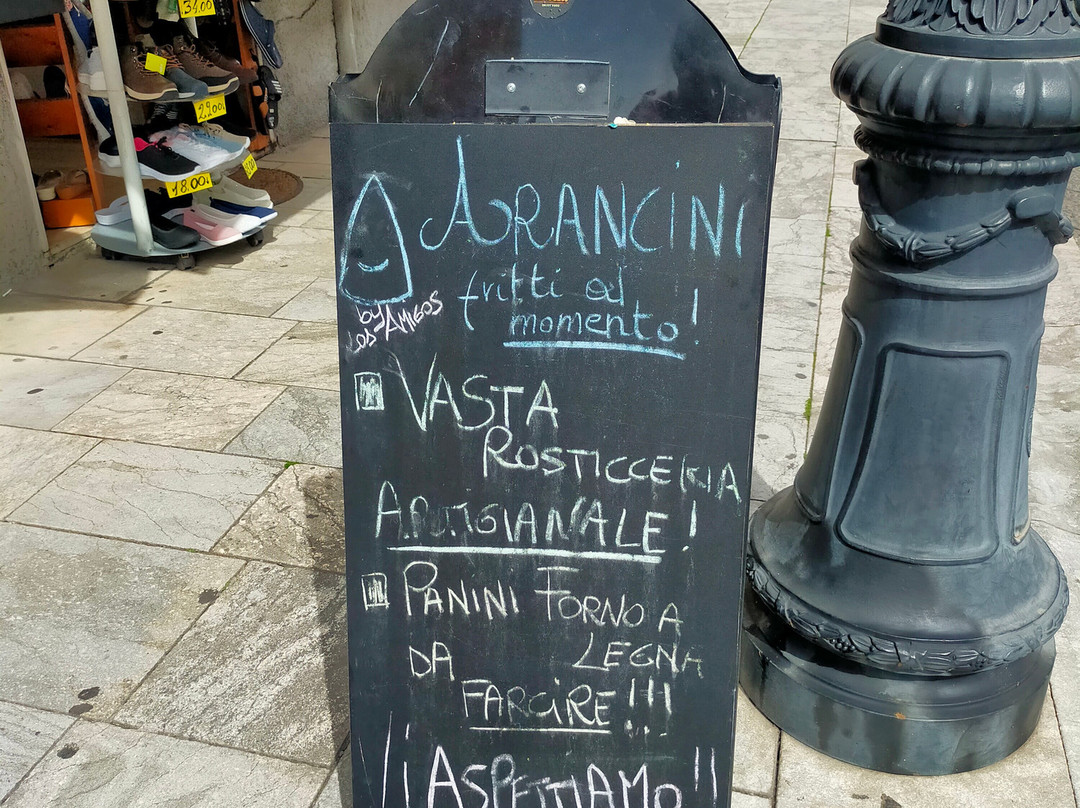 34.00
22.00
18.00
ARANCINI
fritti al
momento!
by
LOS AMIGOS
VASTA
ROSTICCERIA
ARTIGIANALE!
PANINI FORNO A
DA LEGNA
FARCIRE!!!
¡¡ASPETTIAMO!!